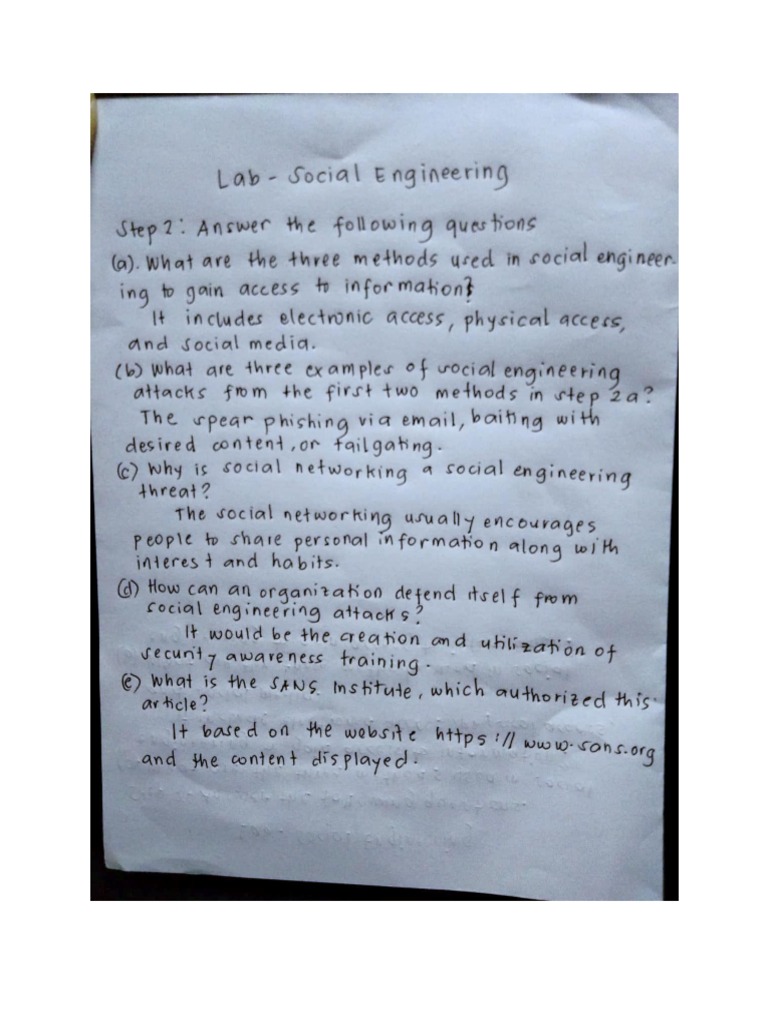 Lab - Social Engineering
Step 2: Answer the following questions
(a). What are the three methods used in social engineer-
ing to gain access to information?
It includes electronic access, physical access,
and social media.
(b) What are three examples of social engineering
attacks from the first two methods in step 2a?
The spear phishing via email, baiting with
desired content, or tailgating.
(c) Why is social networking a social engineering
threat?
The social networking usually encourages
people to share personal information along with
interest and habits.
(d) How can an organization defend itself from
social engineering attacks?
It would be the creation and utilization of
security awareness training.
(e) What is the SANS Institute, which authorized this
article?
It based on the website https://www.sans.org
and the content displayed.